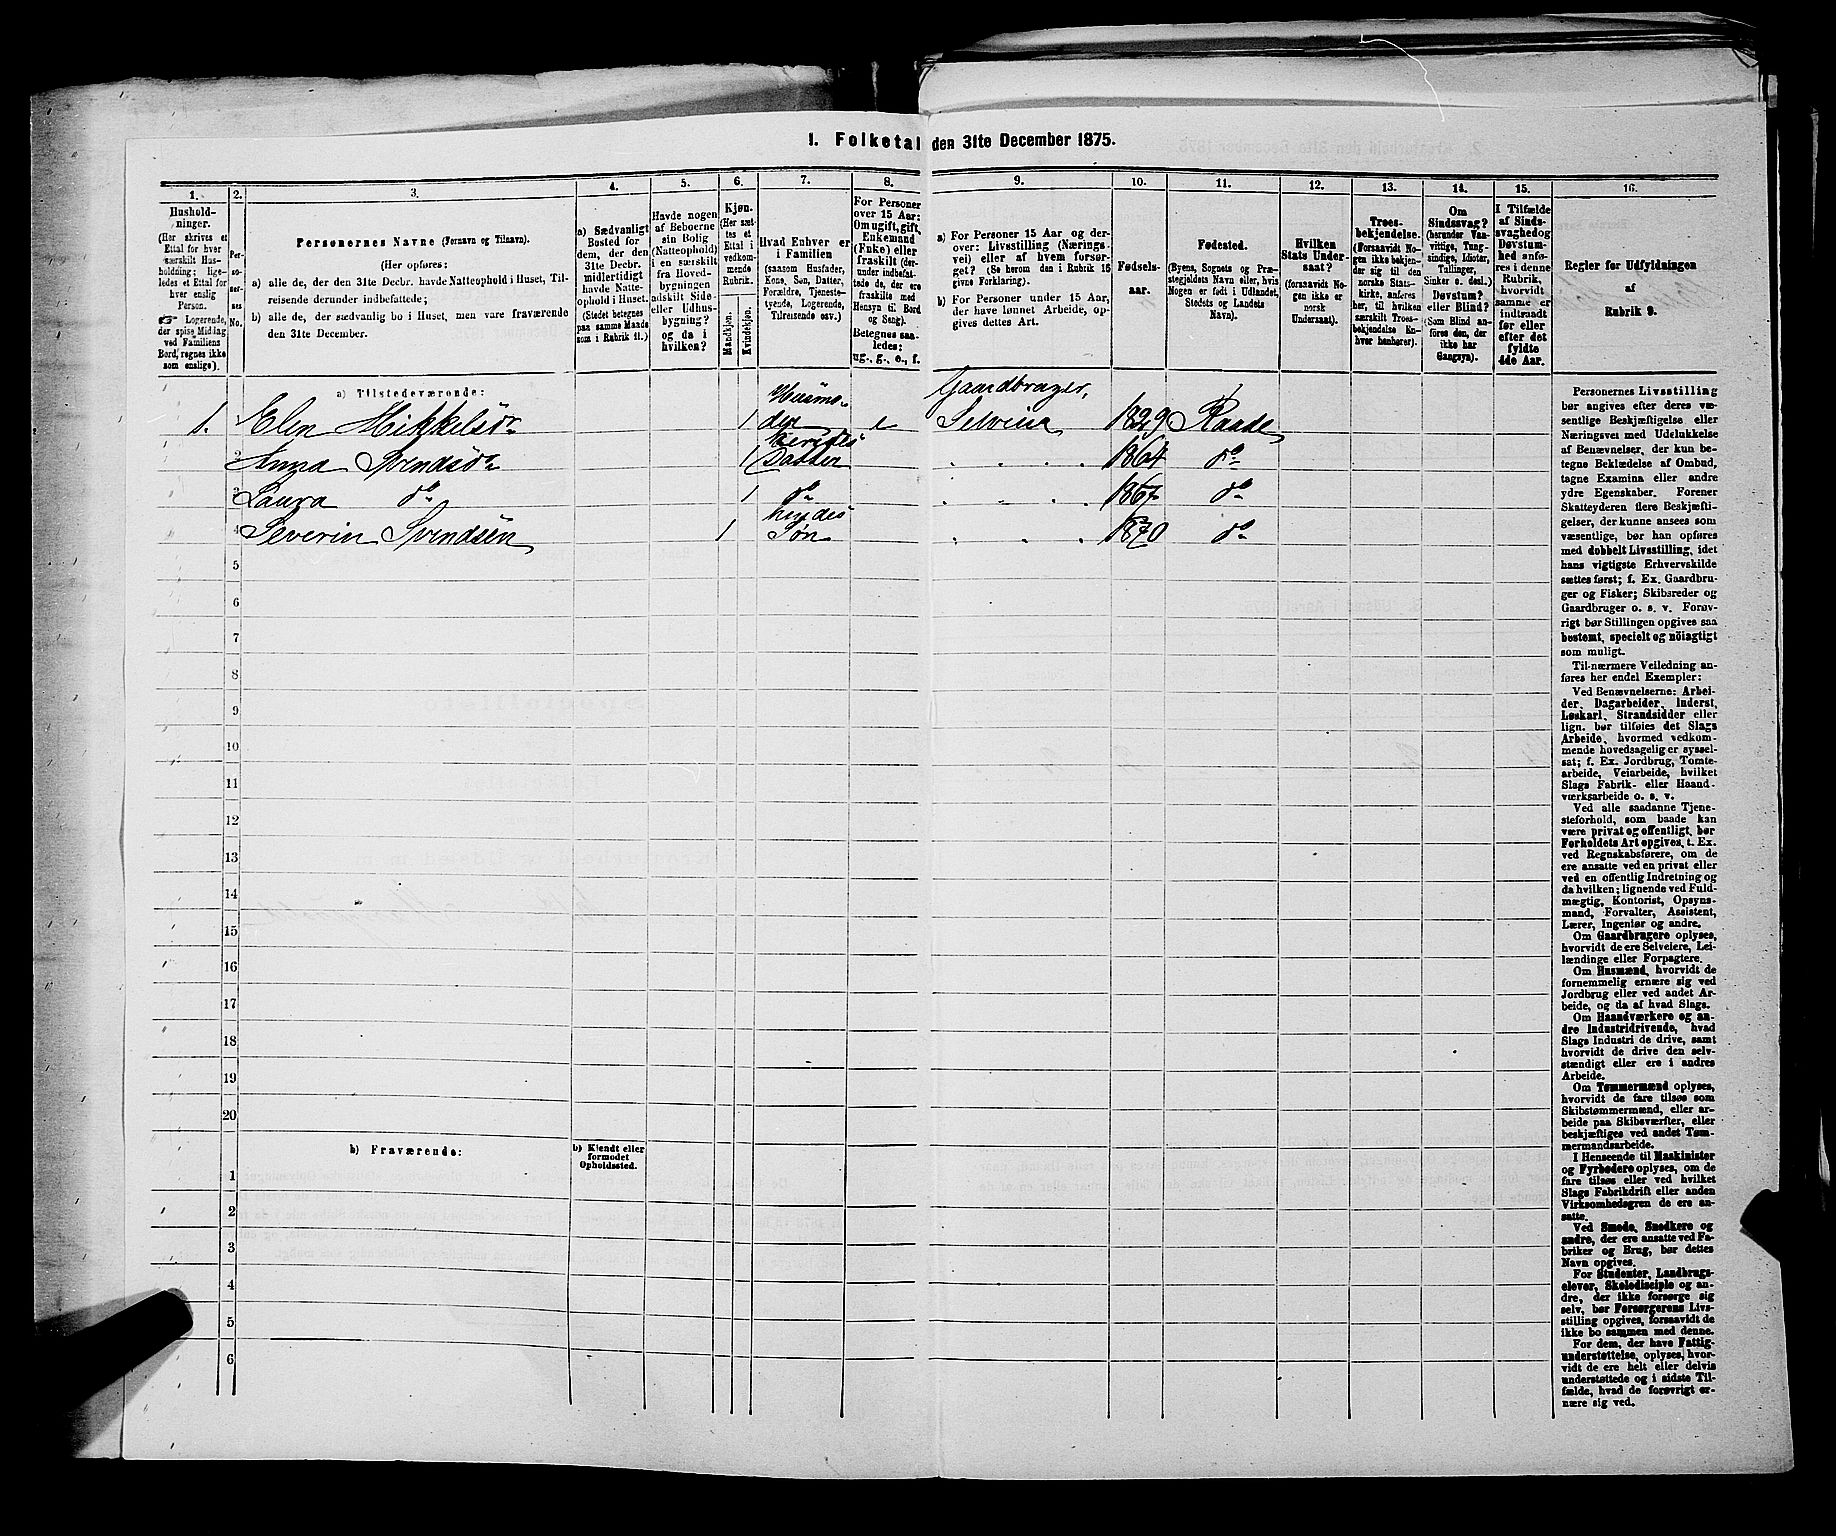 1. Folketal den 31te December 1875.
1. 2. 3. 4. 5. 6. 7. 8. 9. 10. 11. 12. 13. 14. 15. 16.
Hushold-
ninger.
(Her skrives et
Ettal for hver
særskilt Hus-
holdning; lige-
ledes et Ettal for
hver enslig
Person.
☞ Logerende,
der spise Middag
ved Familiens
Bord, regnes ikke
som enslige).
Per-
so-
ner-
nes
No.
Personernes Navne (Fornavn og Tilnavn).
(Her opføres:
a) alle de, der den 31te Decbr. havde Natteophold i Huset, Til-
reisende derunder indbefattede;
b) alle de, der sædvanlig bo i Huset, men vare fraværende
den 31te December.
a) Sædvanligt
Bosted for
dem, der den
31te Decbr.
midlertidigt
havde Natte-
ophold i Huset.
(Stedet betegnes
paa samme Maade
som i Rubrik 11.)
Havde nogen
af Beboerne
sin Bolig
(Natteophold)
i en særskilt
fra Hoved-
bygningen
adskilt Side-
eller Udhus-
bygning?
og da i
hvilken?
Kjøn.
(Her sæt-
tes et
Ettal i
vedkom-
mende
Rubrik.
Mandkjøn.
Kvindekjøn.
Hvad Enhver er
i Familien
(saasom Husfader,
Kone, Søn, Datter,
Forældre, Tjeneste-
tyende, Logerende,
Tilreisende osv.)
For Personer
over 15 Aar:
Om ugift, gift,
Enkemand
(Enke) eller
fraskilt (der-
under indbefat-
tede de, der ere
fraskilte med
Hensyn til Bord
og Seng).
Betegnes saa-
ledes:
ug., g., e., f.
a) For Personer 15 Aar og der-
over: Livsstilling (Nærings-
vei) eller af hvem forsør-
get? (Se herom den i Rubrik 16
givne Forklaring).
b) For Personer under 15 Aar,
der have lønnet Arbeide, op-
gives dettes Art.
Fødsels-
aar.
Fødested.
(Byens, Sognets og Præ-
stegjeldets Navn eller, hvis
Nogen er født i Udlandet,
Stedets og Landets
Navn).
Hvilken
Stats Under-
saat?
(forsaavidt No-
gen ikke er
norsk
Undersaat).
Troes-
bekjendelse.
(Forsaavidt No-
gen ikke bekjen-
der sig til den
norske Stats-
kirke, anføres
her, til hvilken
særskilt Troes-
bekjendelse En-
hver henhører).
Om
Sindssvag?
(herunder Van-
vittige, Tung-
sindige, Idioter,
Tullinger,
Sinker o. desl.)
Døvstum?
eller Blind?
(Som Blind an-
føres den, der
ikke har
Gangsyn).
I Tilfælde
af Sinds-
svaghed og
Døvstum-
hed anfø-
res i denne
Rubrik,
hvorvidt
samme er
indtraadt
før eller
efter det
fyldte
4de Aar.
Regler for Udfyldningen
af
Rubrik 9.
a) Tilstedeværende:
1. 1 Elen Mikkelsdr 1 Husmo-
der e Gaardbruger,
Selveier 1829 Raade
2 Anna Svendsdr 1 Hendes
Datter 1864 do
3 Laura do 1 do 1867 do
4 Severin Svendsen 1 hendes
Søn 1870 do
5
6
7
8
9
10
11
12
13
14
15
16
17
18
19
20
b) Fraværende:
b) Kjendt eller
formodet
Opholdssted.
1
2
3
4
5
6
Personernes Livsstilling
bør angives efter deres væ-
sentlige Beskjæftigelse eller
Næringsvei med Udelukkelse
af Benævnelser, der kun be-
tegne Beklædelse af Ombud,
tagne Examina eller andre
ydre Egenskaber. Forener
Skatteyderen flere Beskjæfti-
gelser, der kunne ansees som
væsentlige, bør han opføres
med dobbelt Livsstilling, idet
hans vigtigste Erhvervskilde
sættes først; f. Ex. Gaardbru-
ger og Fisker; Skibsreder og
Gaardbruger o. s. v. Forøv-
rigt bør Stillingen opgives saa
bestemt, specielt og nöiagtigt
som muligt.
Til nærmere Veiledning an-
føres her endel Exempler:
Ved Benævnelserne: Arbei-
der, Dagarbeider, Inderst,
Løskarl, Strandsidder eller
lign. bør tilføies det Slags
Arbeide, hvormed vedkom-
mende hovedsagelig er syssel-
sat; f. Ex. Jordbrug, Tomte-
arbeide, Veiarbeide, hvilket
Slags Fabrik- eller Haand-
værksarbeide o. s. v.
Ved alle saadanne Tjene-
steforhold, som baade kan
være privat og offentligt, bør
Forholdets Art opgives, t. Ex.
ved Regnskabsførere, om de
ere ansatte ved en privat eller
ved en offentlig Indretning og
da hvilken; lignende ved Fuld-
mægtig, Kontorist, Opsyns-
mand, Forvalter, Assistent,
Lærer, Ingeniør og andre.
Om Gaardbrugere oplyses,
hvorvidt de ere Selveiere, Lei-
lændinge eller Forpagtere.
Om Husmænd, hvorvidt de
fornemmelig ernære sig ved
Jordbrug eller ved andet Ar-
beide, og da af hvad Slags.
Om Haandværkere og an-
dre Industridrivende, hvad
Slags Industri de drive, samt
hvorvidt de drive den selv-
stændigt eller ere i andres
Arbeide.
Om Tømmermænd oplyses,
hvorvidt de fare tilsøs som
Skibstømmermænd, eller ar-
beide paa Skibsværfter, eller
beskjæftiges ved andet Tøm-
mermandsarbeide.
I Henseende til Maskinister
og Fyrbødere oplyses, om de
fare tilsøs eller ved hvilket
Slags Fabrikdrift eller anden
Virksomhedsgren de ere an-
satte.
Ved Smede, Snedkere og
andre, der ere ansatte ved Fa-
briker og Brug, bør dettes
Navn opgives.
For Studenter, Landbrugs-
elever, Skoledisciple og an-
dre, der ikke forsørge sig
selv, bør Forsørgerens Livs-
stilling opgives, forsaavidt de
ikke bo sammen med denne.
For dem, der have Fattig-
understøttelse, oplyses, hvor-
vidt de ere helt eller delvis
understøttede og i sidste Til-
fælde, hvad de forøvrigt er-
nære sig ved.